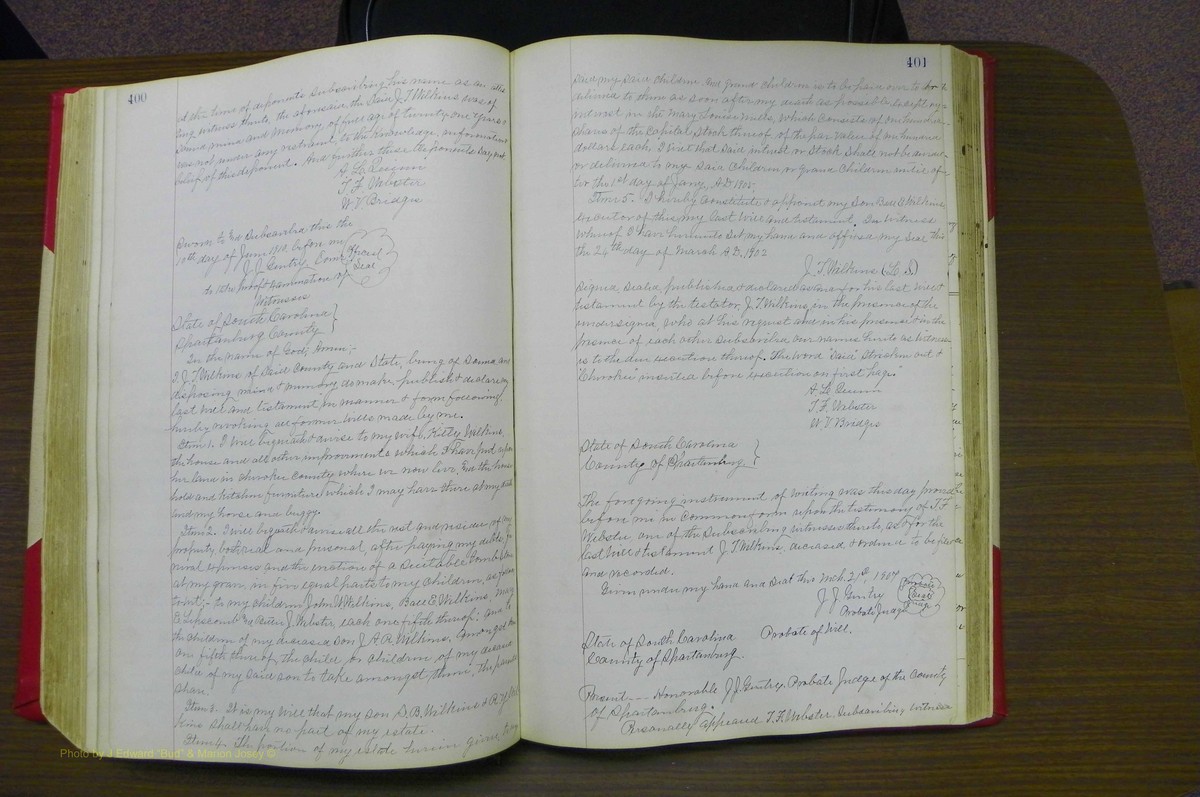 400
d the time of deponents subscribing his name as an attes
ting witness thereto, the aforesaid, the said J. T. Wilkins was of
sound mind and memory, of full age of twenty one years
was not under any restraint, to the knowledge, information
belief of this deponent. And further these deponents say not
T. F. Webster
W. V. Bridges
Sworn to and subscribed this the
10th day of June 1910, before me
J. J. Gentry
Official
Seal
to take proof & examination of
Witnesses
State of South Carolina }
Spartanburg County }
In the name of God, Amen:-
I, J. T. Wilkins of said County and State, being of sound and
disposing mind & memory do make, publish & declare my
last will and testament, in manner & form following
hereby revoking all former wills made by me.
Item 1. I will bequeath & devise to my wife, Kitty Wilkins,
the house and all other improvements which I have put upon
her land in Cherokee County, where we now live, and the house
hold and kitchen furniture, which I may have there at my death
and my horse and buggy.
Item 2. I will bequeath & devise all the rest and residue of my
property both real and personal, after paying my debts, fu
neral expenses and the erection of a suitable tombstone
at my grave, in five equal parts to my children, as follows
towit;- to my children John W Wilkins, Ball E Wilkins, Mary
E Lipscomb and J. Webster, each one fifth thereof: and to
the children of my deceased son J. A. R. Wilkins, amongst them
one fifth thereof, the child or children of my deceased
child of my said son to take amongst them, the parents
share.
Item 3. It is my will that my son D. B. Wilkins & R. Y. Wil
kins shall have no part of my estate.
Item 4. The portion of my estate herein given to
401
said my said children and grand children is to be paid over to & or
delivered to them as soon after my death as possible except my
interest in the Mary Louise Mills, which consists of one hundred
shares of the Capital Stock thereof of the par value of one hundred
dollars each. I direct that said interest or stock shall not be
or delivered to my said children or grand children until af-
ter the 1st day of Jany, A.D. 1905.
Item 5. I hereby constitute & appoint my son Ball E Wilkins
executor of this my last will and testament. In witness
whereof I have hereunto set my hand and affixed my seal this
the 24th day of March A.D. 1902
J. T. Wilkins (L. S.)
Signed, sealed, published & declared as and for his last will &
testament by the testator, J. T. Wilkins, in the presence of the
undersigned, who at his request and in his presence & in the
presence of each other subscribed our names hereto as witnesses
to the due execution thereof. The word "said" stricken out &
"Cherokee" inserted before execution on first page."
T. F. Webster
W. V. Bridges
State of South Carolina }
County of Spartanburg }
The foregoing instrument of writing was this day proved
before me in common form upon the testimony of T. F.
Webster one of the subscribing witnesses thereto, as & for the
last will & testament J. T. Wilkins, deceased, & ordered to be filed
and recorded.
Given under my hand and seal this Mch. 21st, 1907
J. J. Gentry
Probate Judge
Probate
Seal
State of South Carolina Probate of Will.
County of Spartanburg.
Present --- Honorable J. J. Gentry, Probate Judge of the County
of Spartanburg.
Personally appeared T. F. Webster subscribing witness
Photo by J Edward "Bud" & Marion Josey ©